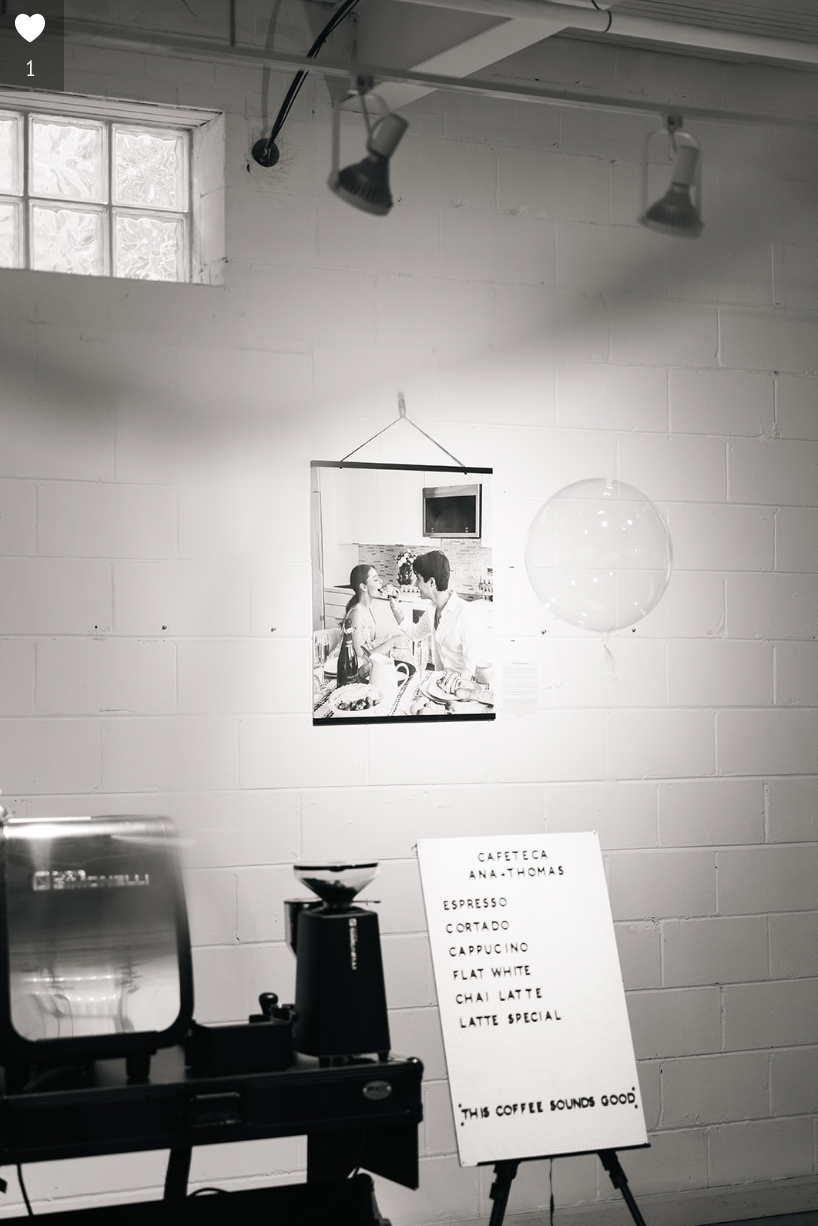 1
SIMONELLI
CAFETECA
ANA+THOMAS
ESPRESSO
CORTADO
CAPPUCINO
FLAT WHITE
CHAI LATTE
LATTE SPECIAL
THIS COFFEE SOUNDS GOOD